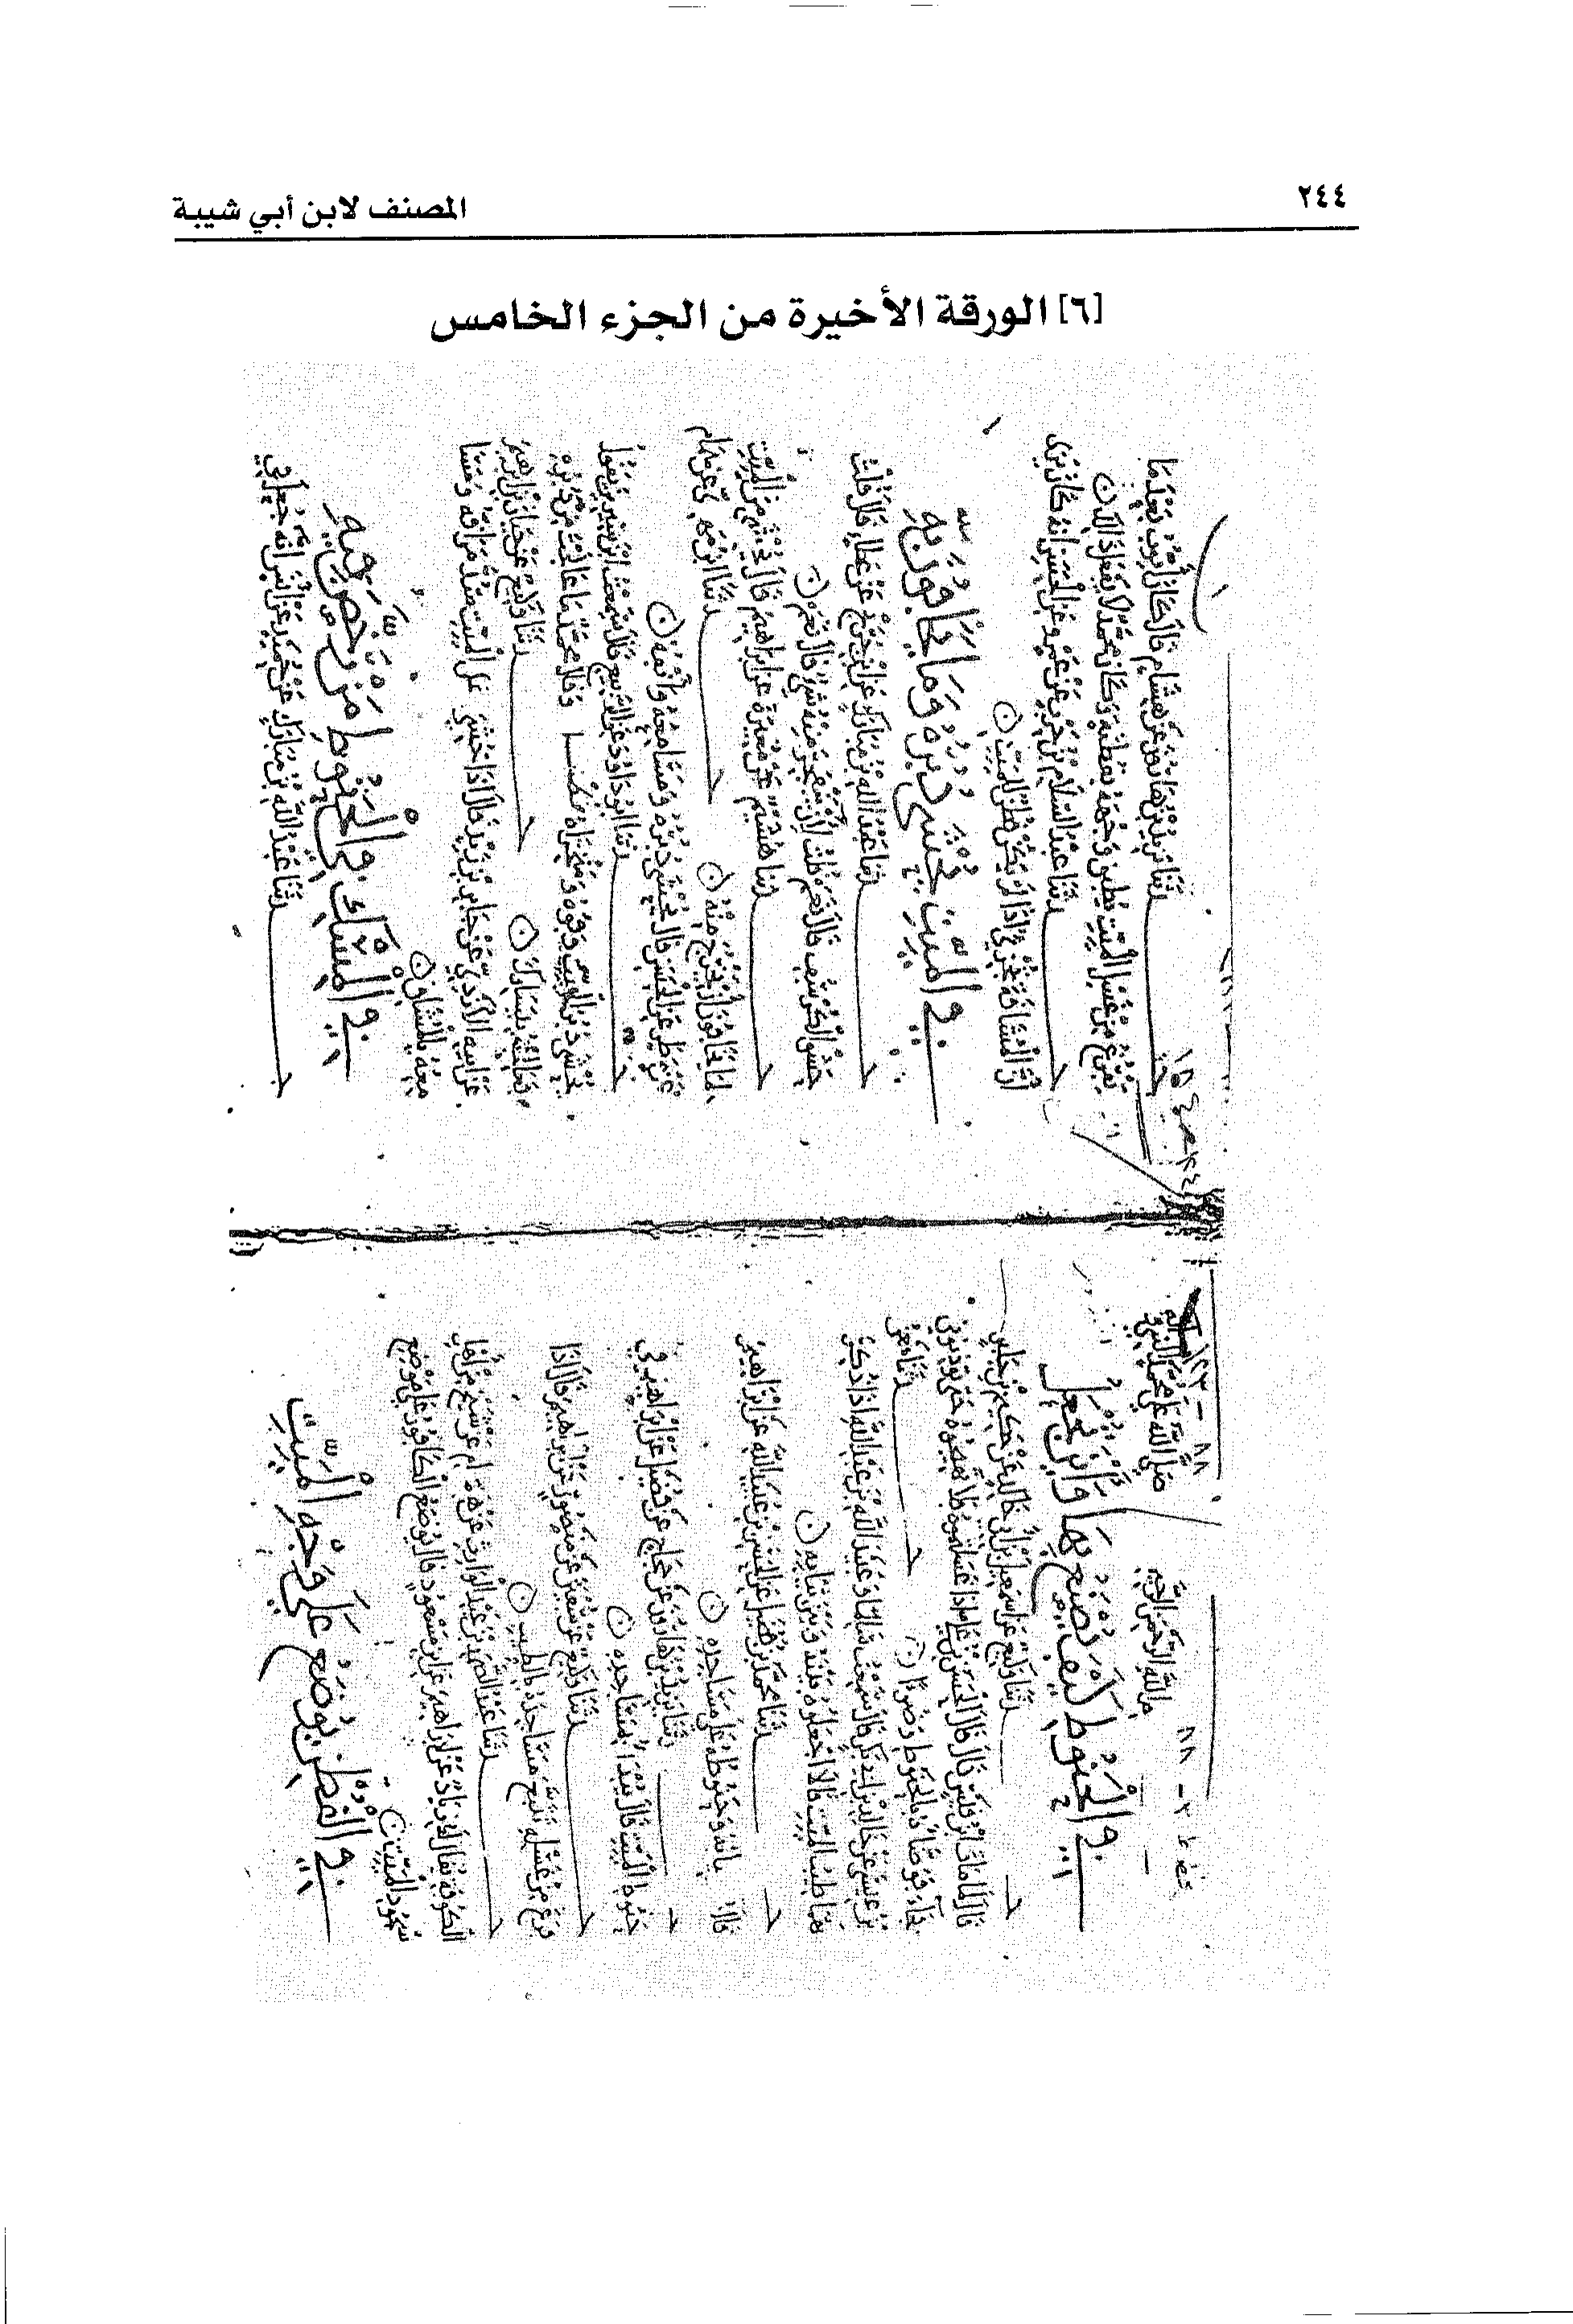 ٢٤٤
المصنف لابن أبي شيبة
[٦] الورقة الأخيرة من الجزء الخامس
الله الرحمن الرحيم صلى الله على محمد النبي
في الحنوط كيف يصنع به وأين يجعل
ثنا وكيع عن اسمعيل بن ابي خالد عن حكيم بن جابر
قال لما مات ابن قيس قال قال الحسن بن علي اذا غسلتموه فلا تهيجوه حتى تؤذنوني
فجاء فوضأه بالحنوط وضوءا ثنا معن
بن عيسى عن خالد بن ابي بكر قال سمعت سالما وعبيد الله بن عبد الله اذا ذكر
لهما طيب الميت قالا اجعلوه بينه وبين ثيابه
ثنا محمد بن فضيل عن الحسن بن عبيد الله عن ابراهيم
وحنوطه على مساجده
ثنا يزيد بن هارون عن حجاج عن فضيل عن ابراهيم في
حنوط الميت قال يبدأ بمساجده
ثنا وكيع عن سفين عن منصور عن ابراهيم قال اذا
فرغ من غسله تتبع مساجده بالطيب
ثنا عبد الصمد بن عبد الوارث عن شيخ من اهل
الكوفة يقال له زياد عن ابراهيم عن ابن مسعود قال يوضع الكافور على موضع
سجود الميت
في القطن يوضع على وجه الميت
ثنا يزيد بن هارون عن هشام قال كان أيوب بعدما
يفرغ من غسل الميت يطبق وجهه بقطنة وكان محمد لا يفعل ذلك
ثنا عبد السلام بن حرب عن عمرو عن الحسن انه كان يرى
ان المشاقة تجزي اذا لم يكن قطن للميت
في الميت يحشى دبره وما يخافون به
ثنا عبد الله بن مبارك عن ابن جريج عن عطاء قال قلت
حشو الكرسف قال نعم قلت لان لا يتفجر منه شي قال نعم
ثنا هشيم عن مغيرة عن ابراهيم قال يحشى من الميت
لما يخافون ان يخرج منه ثنا ابن مهدي عن همام
عن مطر عن الحسن قال يحشى دبره ومسامعه وانفه
ثنا ابو داود عن الربيع قال سمعت ابن سيرين يقول
يحشى دبر الميت وفوه ومنخراه قطنا وقال محمد ما عالجت من دبره
فعالجه بيسارك ثنا وكيع عن حيان بن ابراهيم
عن امية الازدي عن جابر بن زيد قال اذا خشي على الميت
في المسك في الحنوط من رخص فيه
ثنا عبد الله بن مبارك عن حميد عن انس انه جعل في